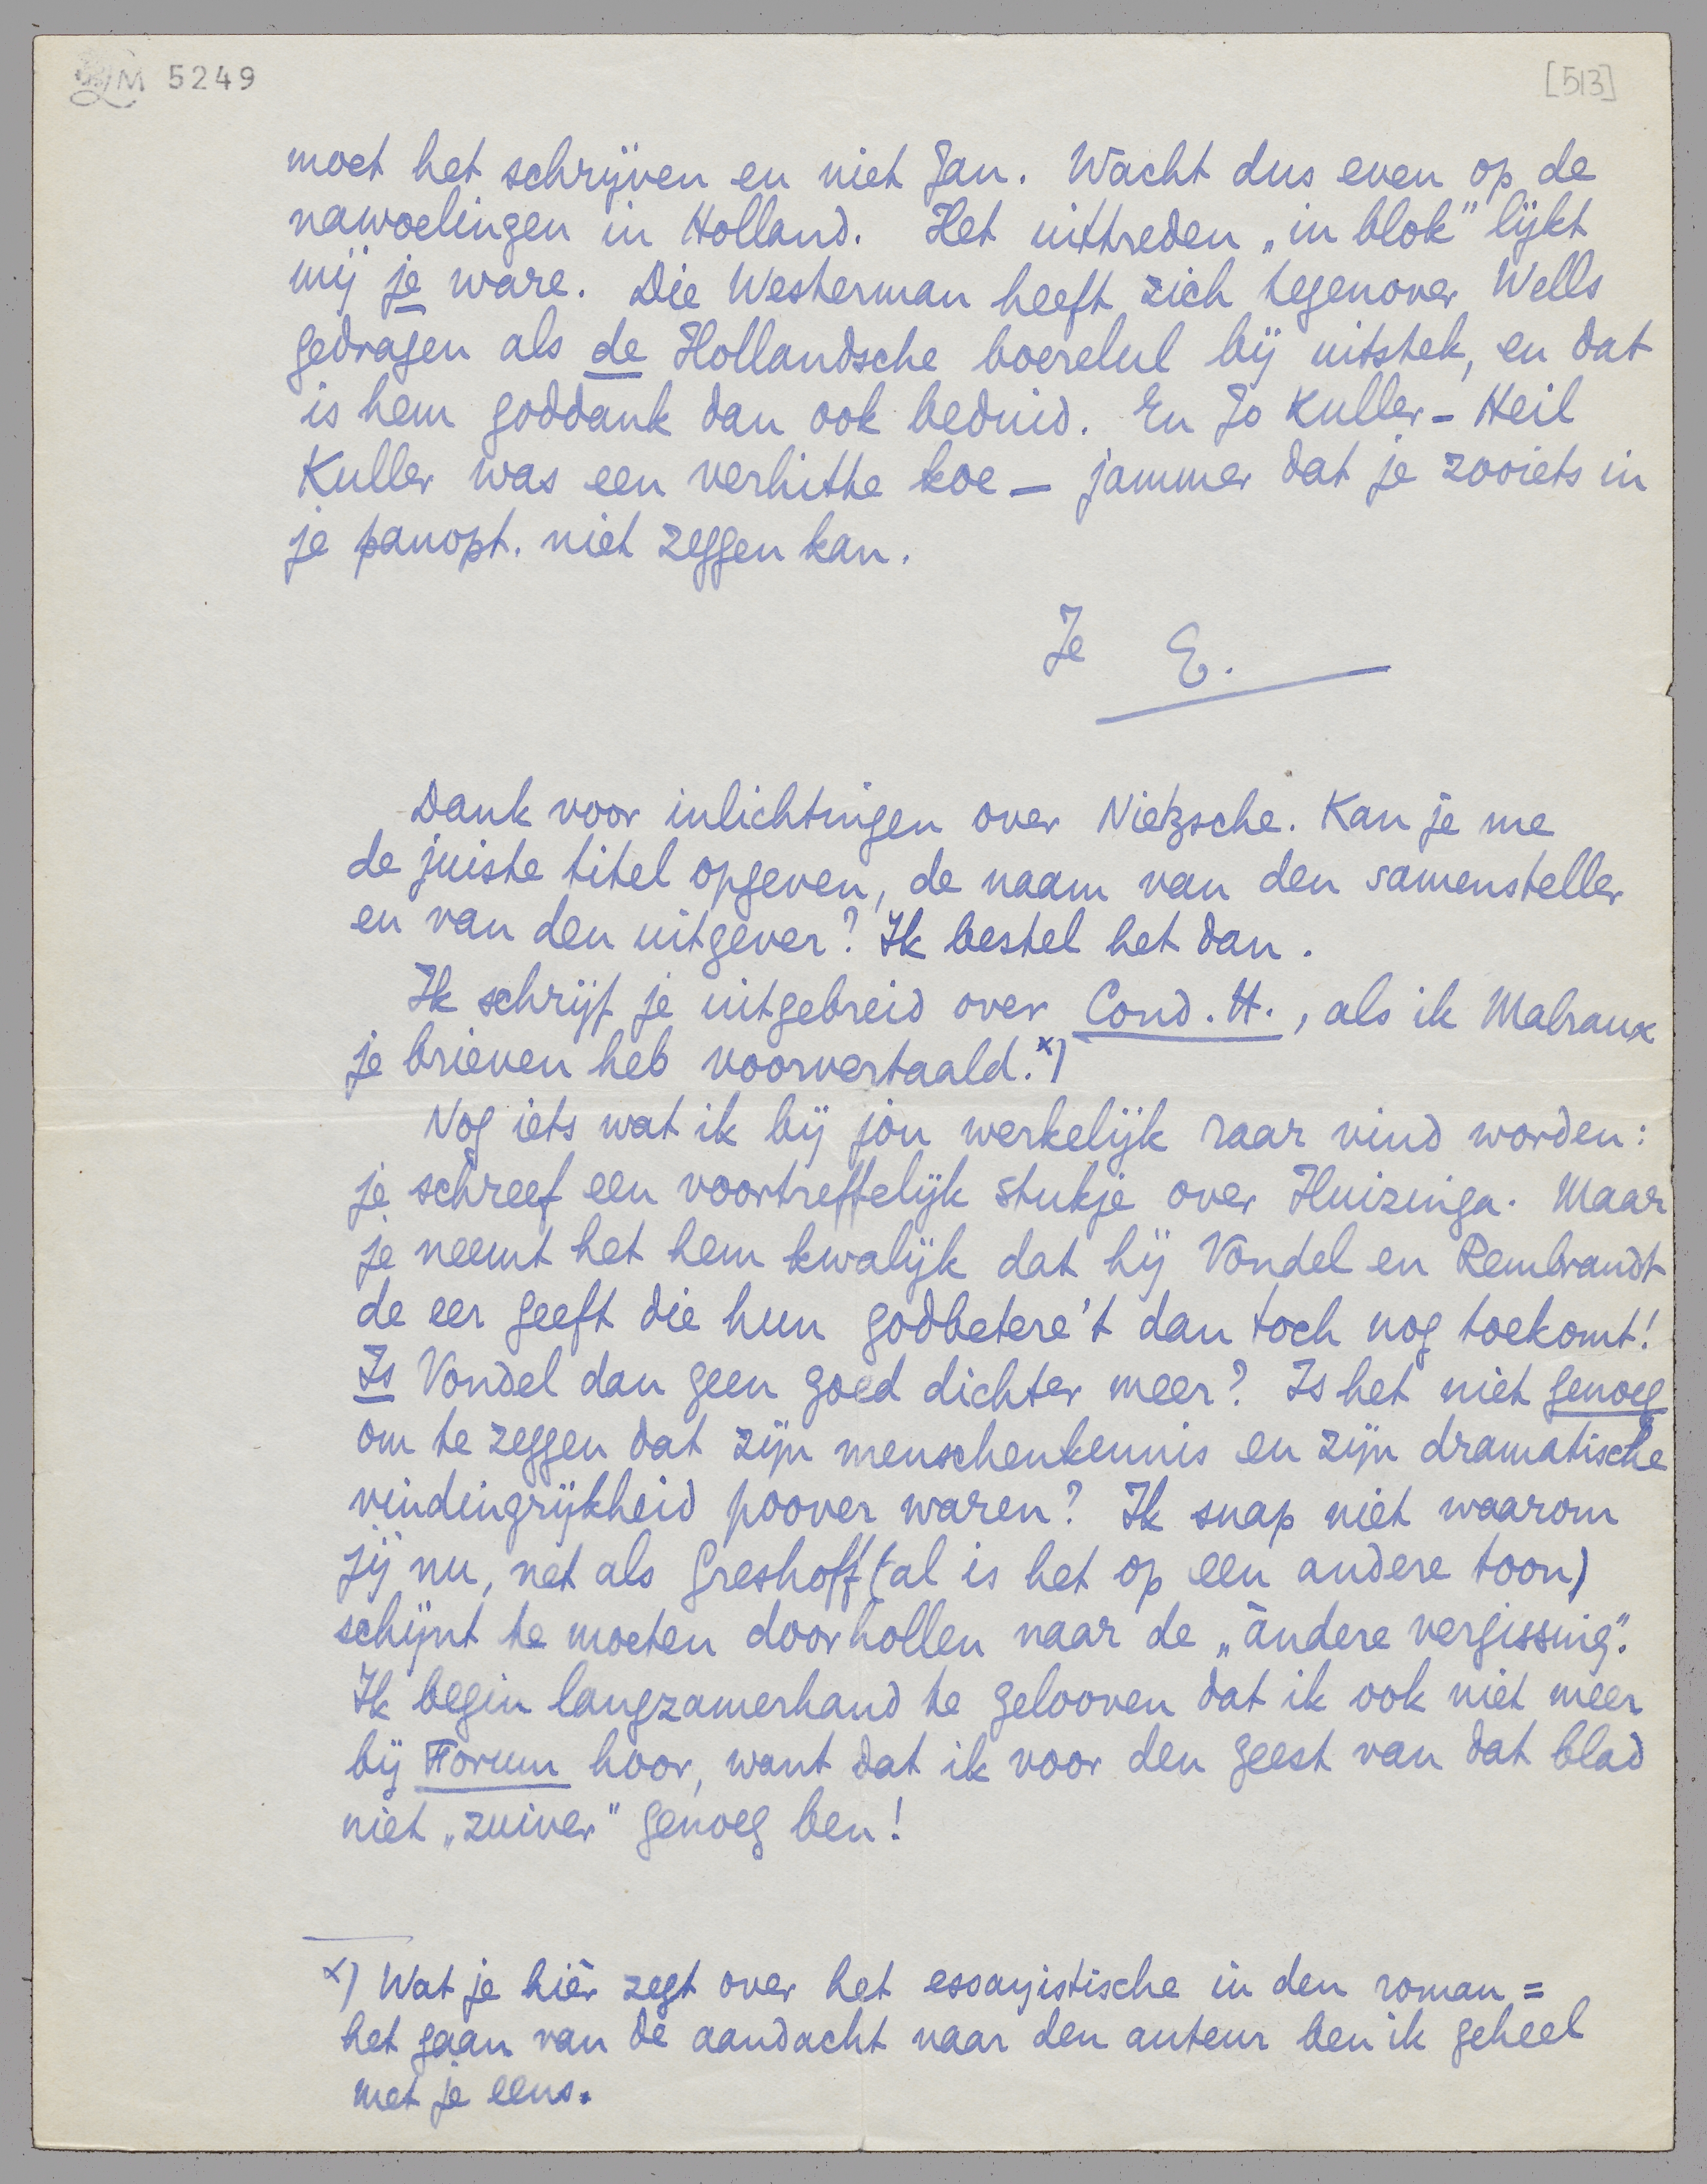 LM 5249
[513]
moet het schrijven en niet Jan. Wacht dus even op de
nawoelingen in Holland. Het uittreden „in blok" lijkt
mij je ware. Die Westerman heeft zich tegenover Wells
gedragen als de Hollandsche boerelul bij uitstek, en dat
is hem goddank dan ook beduid. En Jo Kuller - Heil
Kuller was een verhitte koe — jammer dat je zooiets in
je panopt. niet zeggen kan.
Je E.
Dank voor inlichtingen over Nietzsche. Kan je me
de juiste titel opgeven, de naam van den samensteller
en van den uitgever? Ik bestel het dan.
Ik schrijf je uitgebreid over Cond. H., als ik Malraux
je brieven heb voorvertaald.x)
Nog iets wat ik bij jou werkelijk raar vind worden:
je schreef een voortreffelijk stukje over Huizinga. Maar
je neemt het hem kwalijk dat hij Vondel en Rembrandt
de eer geeft die hun godbetere't dan toch nog toekomt!
Is Vondel dan geen goed dichter meer? Is het niet genoeg
om te zeggen dat zijn menschenkennis en zijn dramatische
vindingrijkheid poover waren? Ik snap niet waarom
jij nu, net als Greshoff (al is het op een andere toon)
schijnt te moeten doorhollen naar de „àndere vergissing".
Ik begin langzamerhand te gelooven dat ik ook niet meer
bij Forum hoor, want dat ik voor den geest van dat blad
niet „zuiver" genoeg ben!
x) Wat je hièr zegt over het essayistische in den roman =
het gaan van de aandacht naar den auteur ben ik geheel
met je eens.